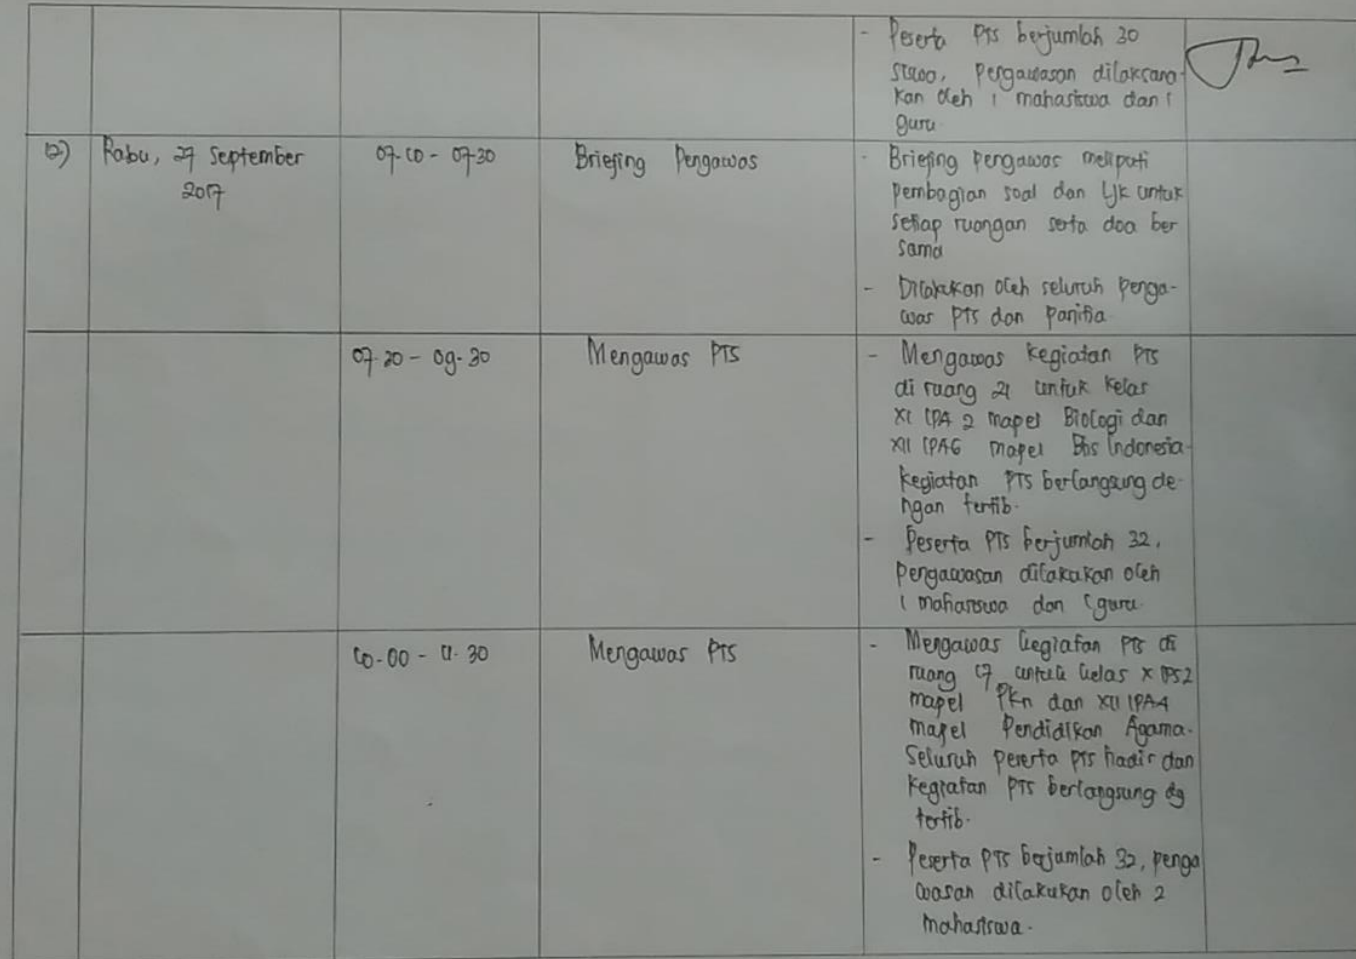 - Peserta PTS berjumlah 30
siswa, Pengawasan dilaksana-
kan oleh 1 mahasiswa dan 1
guru.
12) Rabu, 27 September 07.00 - 07.30 Briefing Pengawas - Briefing pengawas meliputi
2017 pembagian soal dan LJK untuk
setiap ruangan serta doa ber
sama
- Dilakukan oleh seluruh penga-
was PTS dan panitia
07.30 - 09.30 Mengawas PTS - Mengawas kegiatan PTS
di ruang 21 untuk kelas
XI IPA 2 mapel Biologi dan
XII IPA6 mapel Bhs Indonesia.
Kegiatan PTS berlangsung de-
ngan tertib.
- Peserta PTS berjumlah 32,
Pengawasan dilakukan oleh
1 mahasiswa dan 1 guru.
10.00 - 11.30 Mengawas PTS - Mengawas kegiatan PTS di
ruang 17 untuk kelas X IPS2
mapel PKn dan XII IPA4
mapel Pendidikan Agama.
Seluruh peserta PTS hadir dan
kegiatan PTS berlangsung dg
tertib.
- Peserta PTS berjumlah 32, penga
wasan dilakukan oleh 2
mahasiswa.